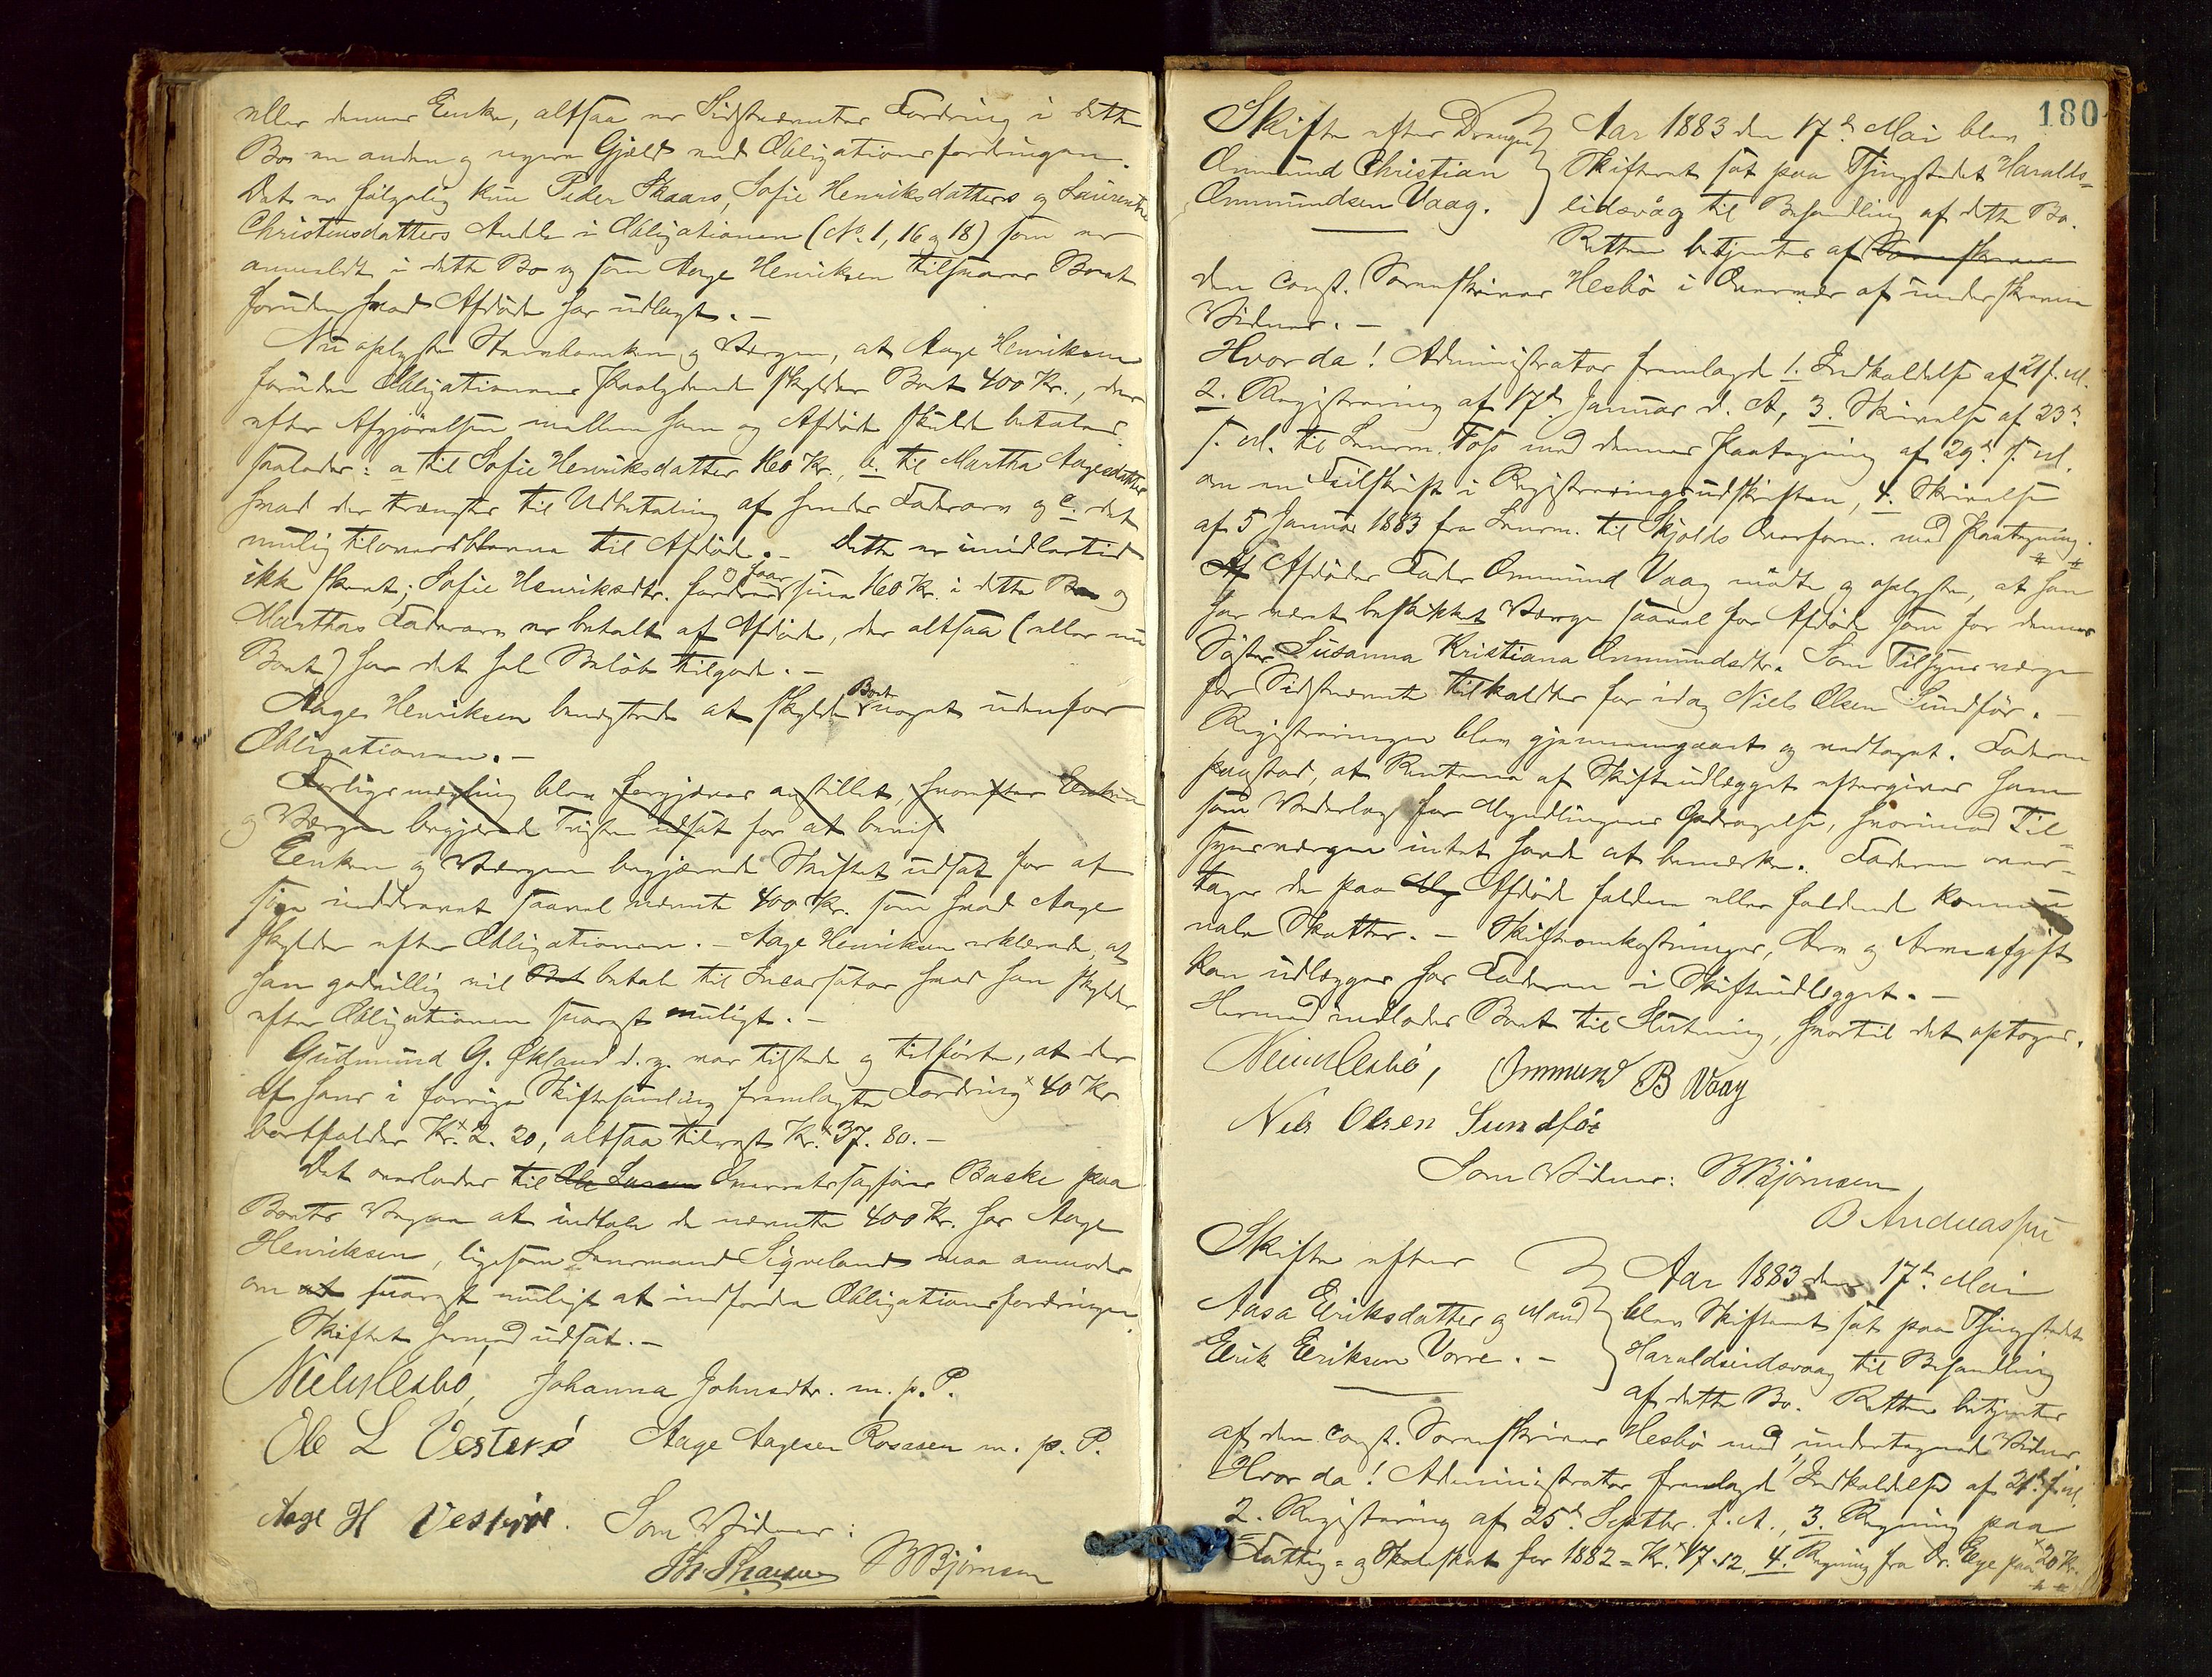 eller dennes Enke, altsaa er Sidstnævntes Fordring i dette
Bo en anden og nyere Gjæld end Obligationsfordringen.
Det er følgelig kun Peder Skaars, Sofie Henriksdatters og Laurentse
Christensdatters Andele i Obligationen (No. 1, 16 og 18) som er
anmeldt i dette Bo og som Aage Henriksen tilsvarer Boet
foruden hvad Afdøde har udlagt. -
Nu oplyste Stervboenken og Værgen, at Aage Henriksen
foruden Obligationens Paalydende skylder Boet 400 Kr., der
efter Afgjørelsen mellem ham og Afdøde skulde betales
saaledes: a til Sofie Henriksdatter 160 Kr., b. til Martha Aagesdatter
hvad der trængtes til Udbetaling af hendes Fadrearv og c. det
mulig tiloversblevne til Afdøde. - Dette er imidlertid
ikke skeet; Sofie Henriksdtr. fordrer og faar sine 160 Kr. i dette Bo og
Marthas Fadrearv er betalt af Afdøde, der altsaa (eller nu
Boet) har det hele Beløb tilgode. -
Aage Henriksen benegtede at skylde Boet noget udenfor
Obligationen. -
Forligsmægling blev forgjæves anstillet, hvorefter Enken
og Værgen begjærede Tvisten udsat for at bevis
Enken og Værgen begjærede Skiftet udsat for at
faa inddrevet saavel nævnte 400 Kr. som hvad Aage
skylder efter Obligationen. - Aage Henriksen erklærede, at
han godvillig vil Bet betale til Incassator hvad han skylder
efter Obligationen snarest muligt. -
Gudmund G. Økland d. y. var tilstede og tilførte, at der
af hans i forrige Skiftesamling fremlagte Fordring 40 Kr
bortfalder Kr. 2. 20, altsaa tilrest Kr. 37. 80. -
Det overlades til Ole Larsen Overretssagfører Baske paa
Boets Vegne at indtale de nævnte 400 Kr. hos Aage
Henriksen, ligesom Lensmand Sigveland maa anmodes
om at snarest muligt at indfordre Obligationsfordringen.
Skiftet hermed udsat. -
Niels Hesbø, Johanna Johnsdtr. m. p. P.
Ole L Vesterø Aage Aagesen Rosasen m. p. P.
Aage H Vesterøe. Som Vidner:
B Bjørnsen
180
Skifte efter Drengen Aar 1883 den 17de Mai blev
Ommund Christian Skifteret sat paa Thingstedet Haralds-
Ommundsen Vaag. eidsvåg til Behandling af dette Bo.
Retten betjentes af Sorenskriver
den const. Sorenskriver Hesbø i Overvær af underskrevne
Vidner. -
Hvor da! Administrator fremlagde 1. Indkaldelse af 21 f. M.
2. Registrering af 17de Januar d. A., 3. Skrivelse af 23de
f. M. til Lensm. Foss med dennes Paategning af 29de f. M.
om en Feilskrift i Registreringsudskriften, 4. Skrivelse
af 5 Januar 1883 fra Lensm. til Skjolds Overform. med Paategning.
Af Afdødes Fader Ommund Vaag mødte og oplyste, at han
har været beskikket Værge saavel for Afdøde som for dennes
Søster Susanna Kristiana Ommundsdtr. Som Tilsynsværge
for Sidstnævnte tilkaldtes for idag Niels Olsen Sundfør. -
Registreringen blev gjennemgaaet og vedtaget. Faderen
paastod, at Renterne af Skifteudlægget eftergives ham
som Vederlag for Myndlingens Opdragelse, hvorimod Til-
synsværgen intet havde at bemærke. Faderen over-
tager de paa My Afdøde faldne eller faldende kommu
nale Skatter. - Skifteomkostninger, Arv og Arveafgift
kan udlægges hos Faderen i Skifteudlægget. -
Hermed indlodes Boet til Slutning, hvortil det optoges.
Niels Hesbø, Ommund B Vaag
Nils Olsen Sundfør
Som Vidner: B Bjørnsen
B Andreassen
Skifte efter Aar 1883 den 17de Mai
Aasa Eriksdatter og Mand blev Skifteret sat paa Thingstedet
Erik Eriksen Vorre. - Haraldseidsvaag til Behandling
af dette Bo. Retten betjentes
af den const. Sorenskriver Hesbø med undertegnede Vidner
Hvor da! Administrator fremlagde 1, Indkaldelse af 21de f. M.
2. Registrering af 25de Septbr. f. A., 3. Regning paa
Fattig- og Skoleskat for 1882 = Kr. 17.12, 4. Regning fra Dr. Ege paa 20 Kr.